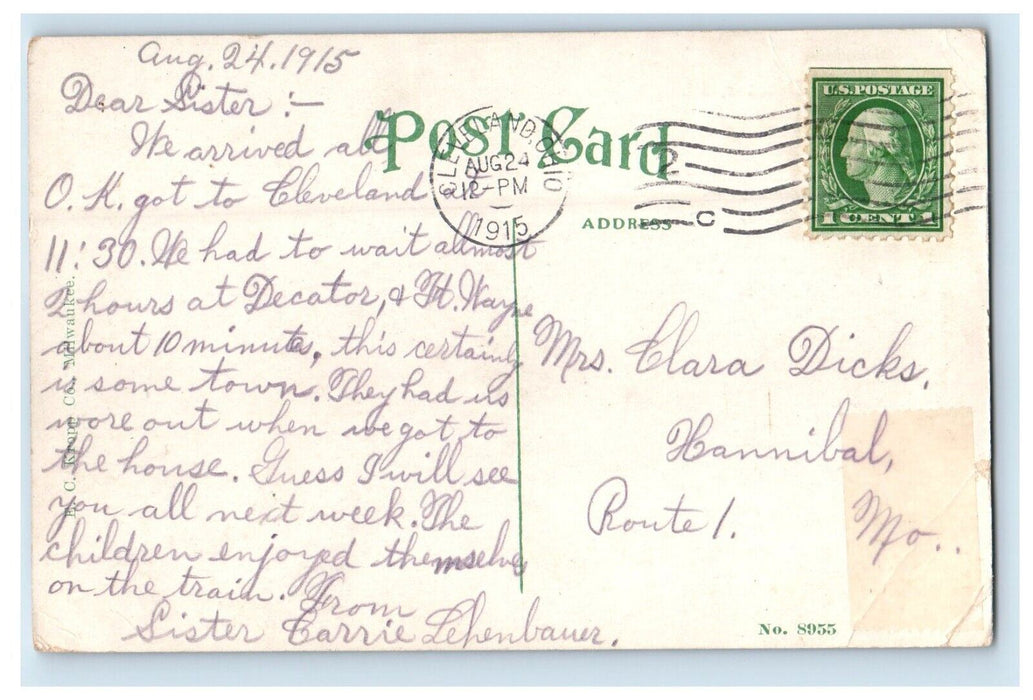 Aug. 24. 1915
Dear Sister :-
We arrived all
O. K. got to Cleveland
11:30. We had to wait allmost
2 hours at Decator, & Ft. Wayne
about 10 minutes, this certainly
is some town. They had us
wore out when we got to
the house. Guess I will see
you all next week. The
children enjoyed themselves
on the train. From
Sister Carrie Lehenbauer.
Post Card
CLEVELAND, OHIO
AUG 24
12-PM
1915
2
C
U.S. POSTAGE
1 CENT 1
ADDRESS
Mrs. Clara Dicks.
Hannibal,
Route 1.
Mo..
No. 8955
E. C. Kropp Co., Milwaukee.